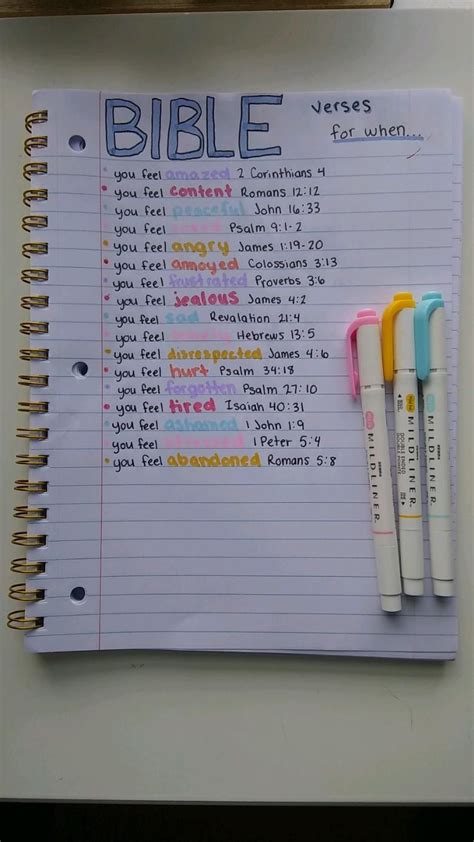 BIBLE verses
for when...
you feel amazed 2 Corinthians 4
you feel content Romans 12:12
you feel peaceful John 16:33
you feel Psalm 9:1-2
you feel angry James 1:19-20
you feel annoyed Colossians 3:13
you feel frustrated Proverbs 3:6
you feel jealous James 4:2
you feel sad Revalation 21:4
you feel lonely Hebrews 13:5
you feel disrespected James 4:6
you feel hurt Psalm 34:18
you feel forgotten Psalm 27:10
you feel tired Isaiah 40:31
you feel ashamed 1 John 1:9
you feel stressed 1 Peter 5:4
you feel abandoned Romans 5:8
ZEBRA MILDLINER
MILDLINER
ZEBRA MILDLINER